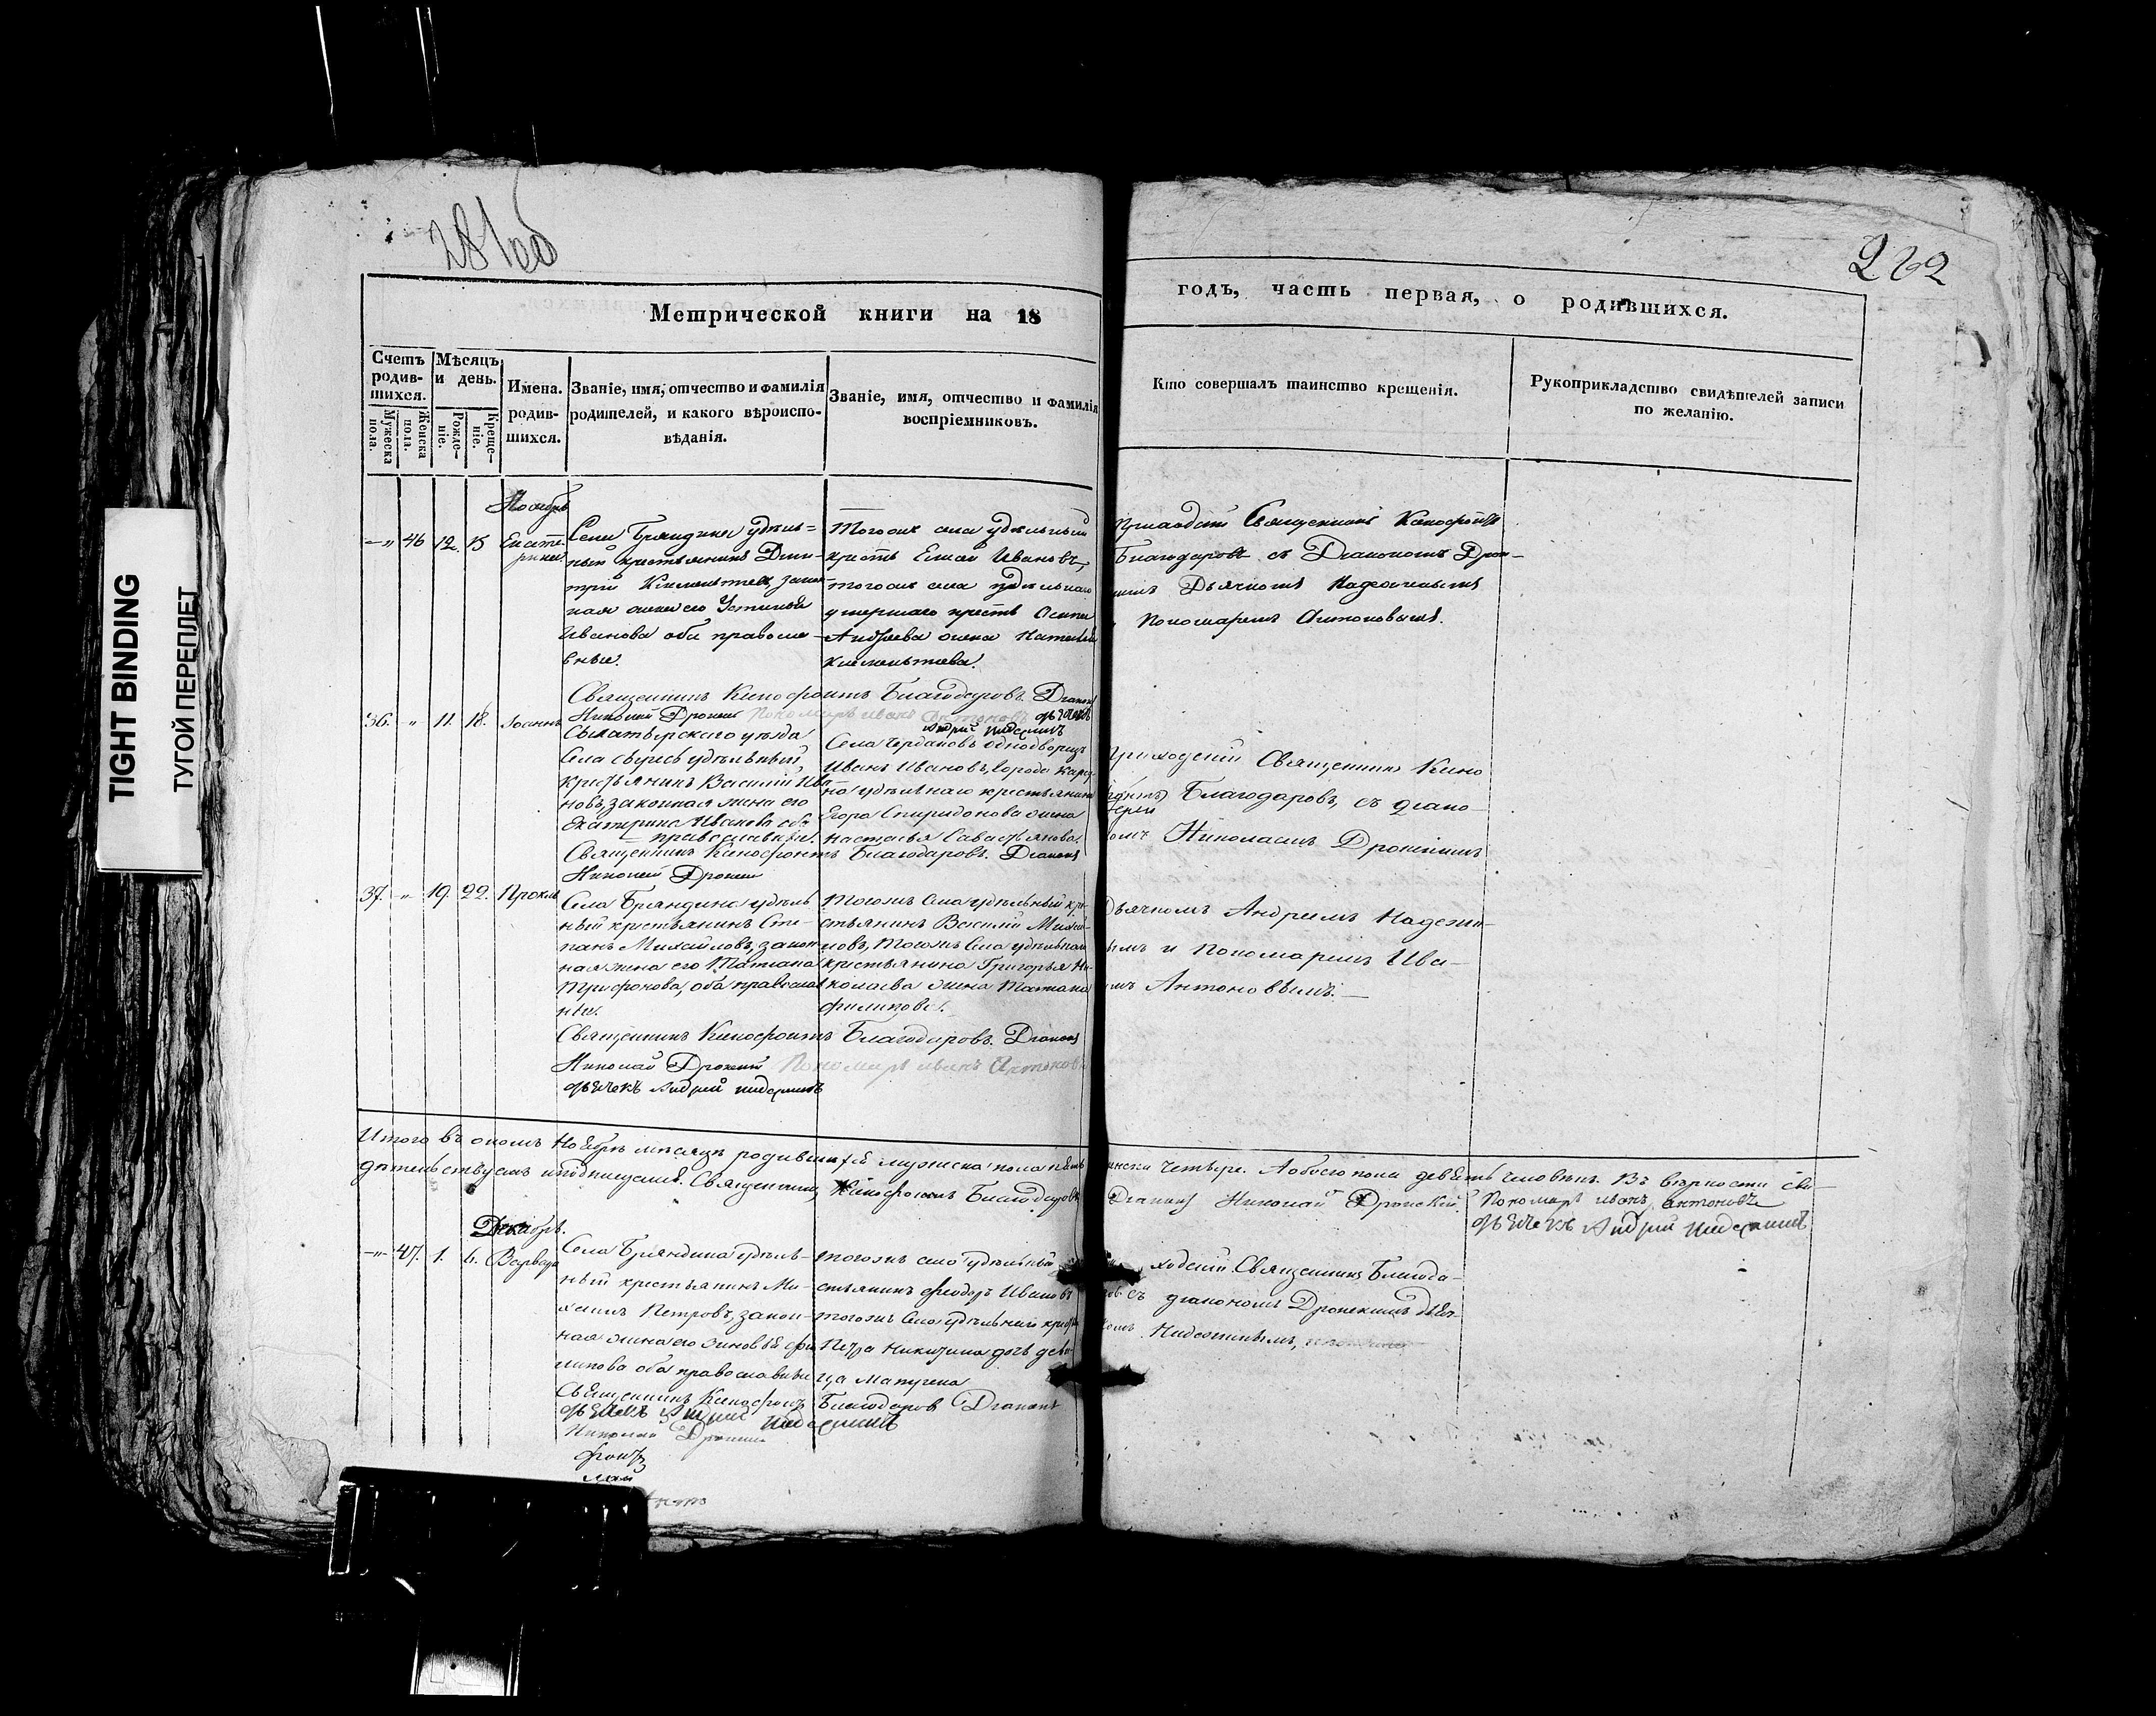 281об
282
Метрической книги на 18
годъ, часть первая, о родившихся.
Счетъ родив-шихся.
Мужеска пола.
Женска пола.
Мѣсяцъ и день.
Рожде-ніе.
Креще-ніе.
Имена. родив-шихся.
Званіе, имя, отчество и фамилія
родителей, и какого вѣроиспо-
вѣданія.
Званіе, имя, отчество и фамилія
воспріемниковъ.
Кто совершалъ таинство крещенія.
Рукоприкладство свидѣтелей записи
по желанію.
Ноябрь
—„ 46 12. 15 Екате-
рина
Села Бряндина удѣль=
ный крестьянинъ Дми-
трій Климентьев, закон-
ная жена его Устинья
Иванова оба правосла-
вные.
Тогожъ села удѣльный
крестн Емел Ивановъ,
тогожъ села удѣльнаго
умершаго крестн Осипа
Андреева жена Наталья
Климентьева.
Приходскій Священникъ Ксенофонтъ
Благодаровъ съ Діакономъ Дрон-
Дьячкомъ Надежинымъ
Пономаремъ Антоновымъ.
Священникъ Ксенофонтъ Благодаровъ. Діаконъ
Николай Дронскій Пономарь иванъ Антоновъ дьячекъ
Андрей Надежинъ
36. „ 11. 18. Іоаннъ
уѣзда
Села удѣльный
крестьянинъ Василій Ива-
новъ, законная жена его
Екатерина Иванова оба
православные.
Села Чердаковъ однодворецъ
Иванъ Ивановъ, города
удѣльнаго крестьянина
Егора Спиридонова жена
Настасья Савастьянова.
Приходскій Священникъ Ксено
фонтъ Благодаровъ, съ діако-
номъ Николаемъ Дронскимъ
Священникъ Ксенофонтъ Благодаровъ. Діаконъ
Николай Дронскій
37. „ 19. 22. Проклъ
Села Бряндина удѣль
ный крестьянинъ Сте-
панъ Михайловъ, закон
ная жена его Татіана
Трифонова, оба православ
ные.
Тогожъ Села удѣльный кре-
стьянинъ Василій Михай-
ловъ, тогожъ Села удѣльнаго
крестьянина Григорья Ни-
колаева жена Татіана
Филипова.
Дьячкомъ Андреемъ Надежи-
нымъ и Пономаремъ Ива-
номъ Антоновымъ.—
Священникъ Ксенофонтъ Благодаровъ. Діаконъ
Николай Дронскій Пономарь иванъ Антоновъ
дьячекъ Андрей Надежинъ
Итого въ ономъ Ноябрѣ мѣсяцѣ родившихся мужеска пола пять женска четыре. А обоего пола девять человѣкъ. Въ вѣрности сви-
дѣтельствуемъ и подписуемъ. Священникъ Ксенофонтъ Благодаровъ Діаконъ Николай Дронскій. Пономарь иванъ антоновъ
дьячекъ Андрей Надежинъ
Декабрь.
—„— 47. 1. 6. Варвара
Села Бряндина удѣль-
ный крестьянинъ Ми-
хаилъ Петровъ, закон-
ная жена его Зиновья Фи
липова оба православные
тогожъ села удѣльный
стьянинъ Феодоръ Ивановъ
тогожъ Села удѣльнаго
Петра Никитина дочь деви-
ца Матрена
ходскій Священникъ Благода-
ровъ съ діакономъ Дронскимъ дьяч-
комъ Надежинымъ,
Священникъ Ксенофонтъ Благодаровъ Діаконъ
дьячекъ Андрей Надежинъ
Николай Дронскій
TIGHT BINDING
ТУГОЙ ПЕРЕПЛЕТ